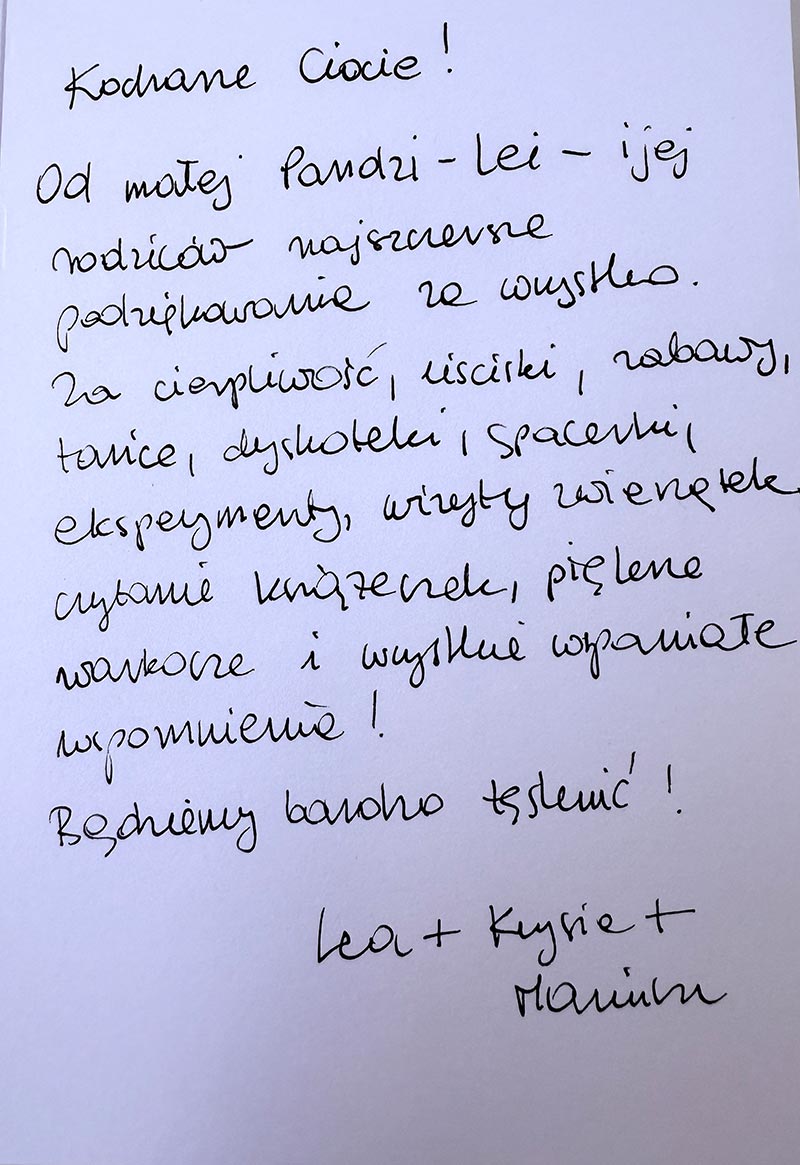 Kochane Ciocie!
Od małej Pandzi - Lei - i jej
rodziców najszczersze
podziękowania za wszystko.
Za cierpliwość, uściski, zabawy,
tańce, dyskoteki, spacerki,
eksperymenty, wizyty zwierzątek
czytanie książeczek, piękne
warkocze i wszystkie wspaniałe
wspomnienia!
Będziemy bardzo tęsknić!
Lea + Krysia +